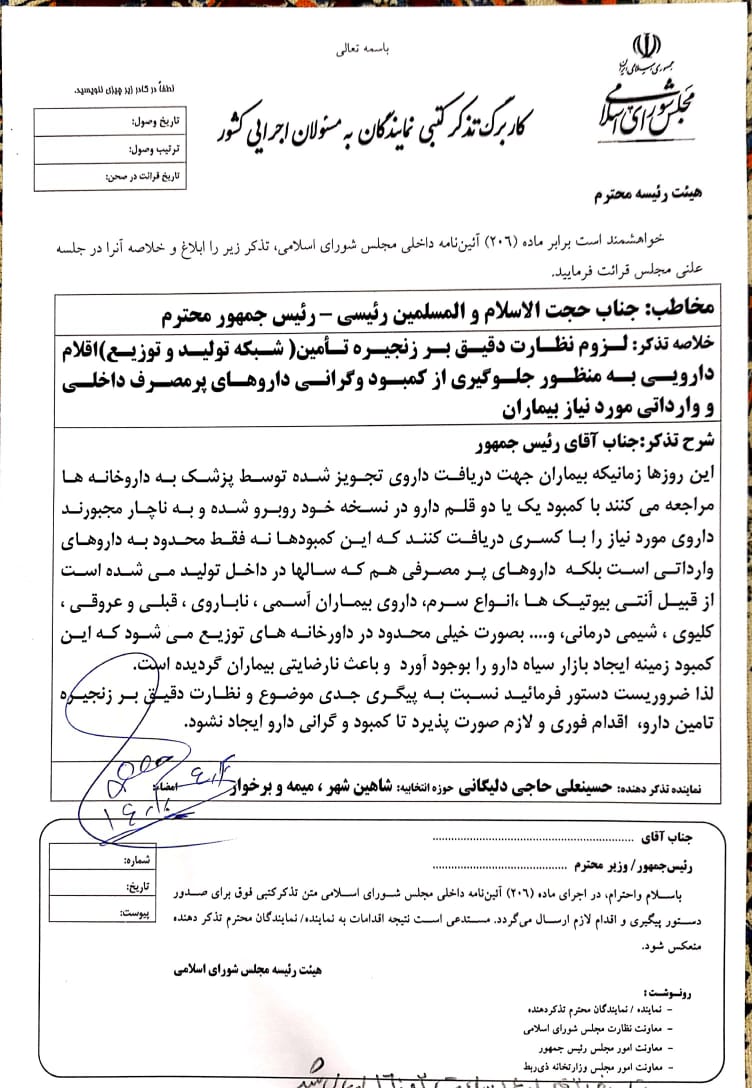 باسمه تعالی
جمهوری اسلامی ایران
مجلس شورای اسلامی
کاربرگ تذکر کتبی نمایندگان به مسئولان اجرایی کشور
لطفاً در کادر زیر چیزی ننویسید.
تاریخ وصول:
ترتیب وصول:
تاریخ قرائت در صحن:
هیئت رئیسه محترم
خواهشمند است برابر ماده (۲۰۶) آئین‌نامه داخلی مجلس شورای اسلامی، تذکر زیر را ابلاغ و خلاصه آنرا در جلسه
علنی مجلس قرائت فرمایید.
مخاطب: جناب حجت الاسلام و المسلمین رئیسی – رئیس جمهور محترم
خلاصه تذکر: لزوم نظارت دقیق بر زنجیره تأمین( شبکه تولید و توزیع)اقلام
دارویی به منظور جلوگیری از کمبود وگرانی داروهای پرمصرف داخلی
و وارداتی مورد نیاز بیماران
شرح تذکر:جناب آقای رئیس جمهور
این روزها زمانیکه بیماران جهت دریافت داروی تجویز شده توسط پزشک به داروخانه ها
مراجعه می کنند با کمبود یک یا دو قلم دارو در نسخه خود روبرو شده و به ناچار مجبورند
داروی مورد نیاز را با کسری دریافت کنند که این کمبودها نه فقط محدود به داروهای
وارداتی است بلکه داروهای پر مصرفی هم که سالها در داخل تولید می شده است
از قبیل آنتی بیوتیک ها ،انواع سرم، داروی بیماران آسمی ، ناباروی ، قبلی و عروقی ،
کلیوی ، شیمی درمانی، و.... بصورت خیلی محدود در داورخانه های توزیع می شود که این
کمبود زمینه ایجاد بازار سیاه دارو را بوجود آورد و باعث نارضایتی بیماران گردیده است.
لذا ضروریست دستور فرمائید نسبت به پیگری جدی موضوع و نظارت دقیق بر زنجیره
تامین دارو، اقدام فوری و لازم صورت پذیرد تا کمبود و گرانی دارو ایجاد نشود.
نماینده تذکر دهنده: حسینعلی حاجی دلیگانی حوزه انتخابیه: شاهین شهر ، میمه و برخوار امضاء:
جناب آقای ........................................
رئیس‌جمهور/ وزیر محترم ...........................
شماره:
تاریخ:
پیوست:
باسلام واحترام، در اجرای ماده (۲۰۶) آئین‌نامه داخلی مجلس شورای اسلامی متن تذکرکتبی فوق برای صدور
دستور پیگیری و اقدام لازم ارسال می‌گردد. مستدعی است نتیجه اقدامات به نماینده/ نمایندگان محترم تذکر دهنده
منعکس شود.
هیئت رئیسه مجلس شورای اسلامی
رونوشت:
- نماینده / نمایندگان محترم تذکردهنده
- معاونت نظارت مجلس شورای اسلامی
- معاونت امور مجلس رئیس جمهور
- معاونت امور مجلس وزارتخانه ذی‌ربط